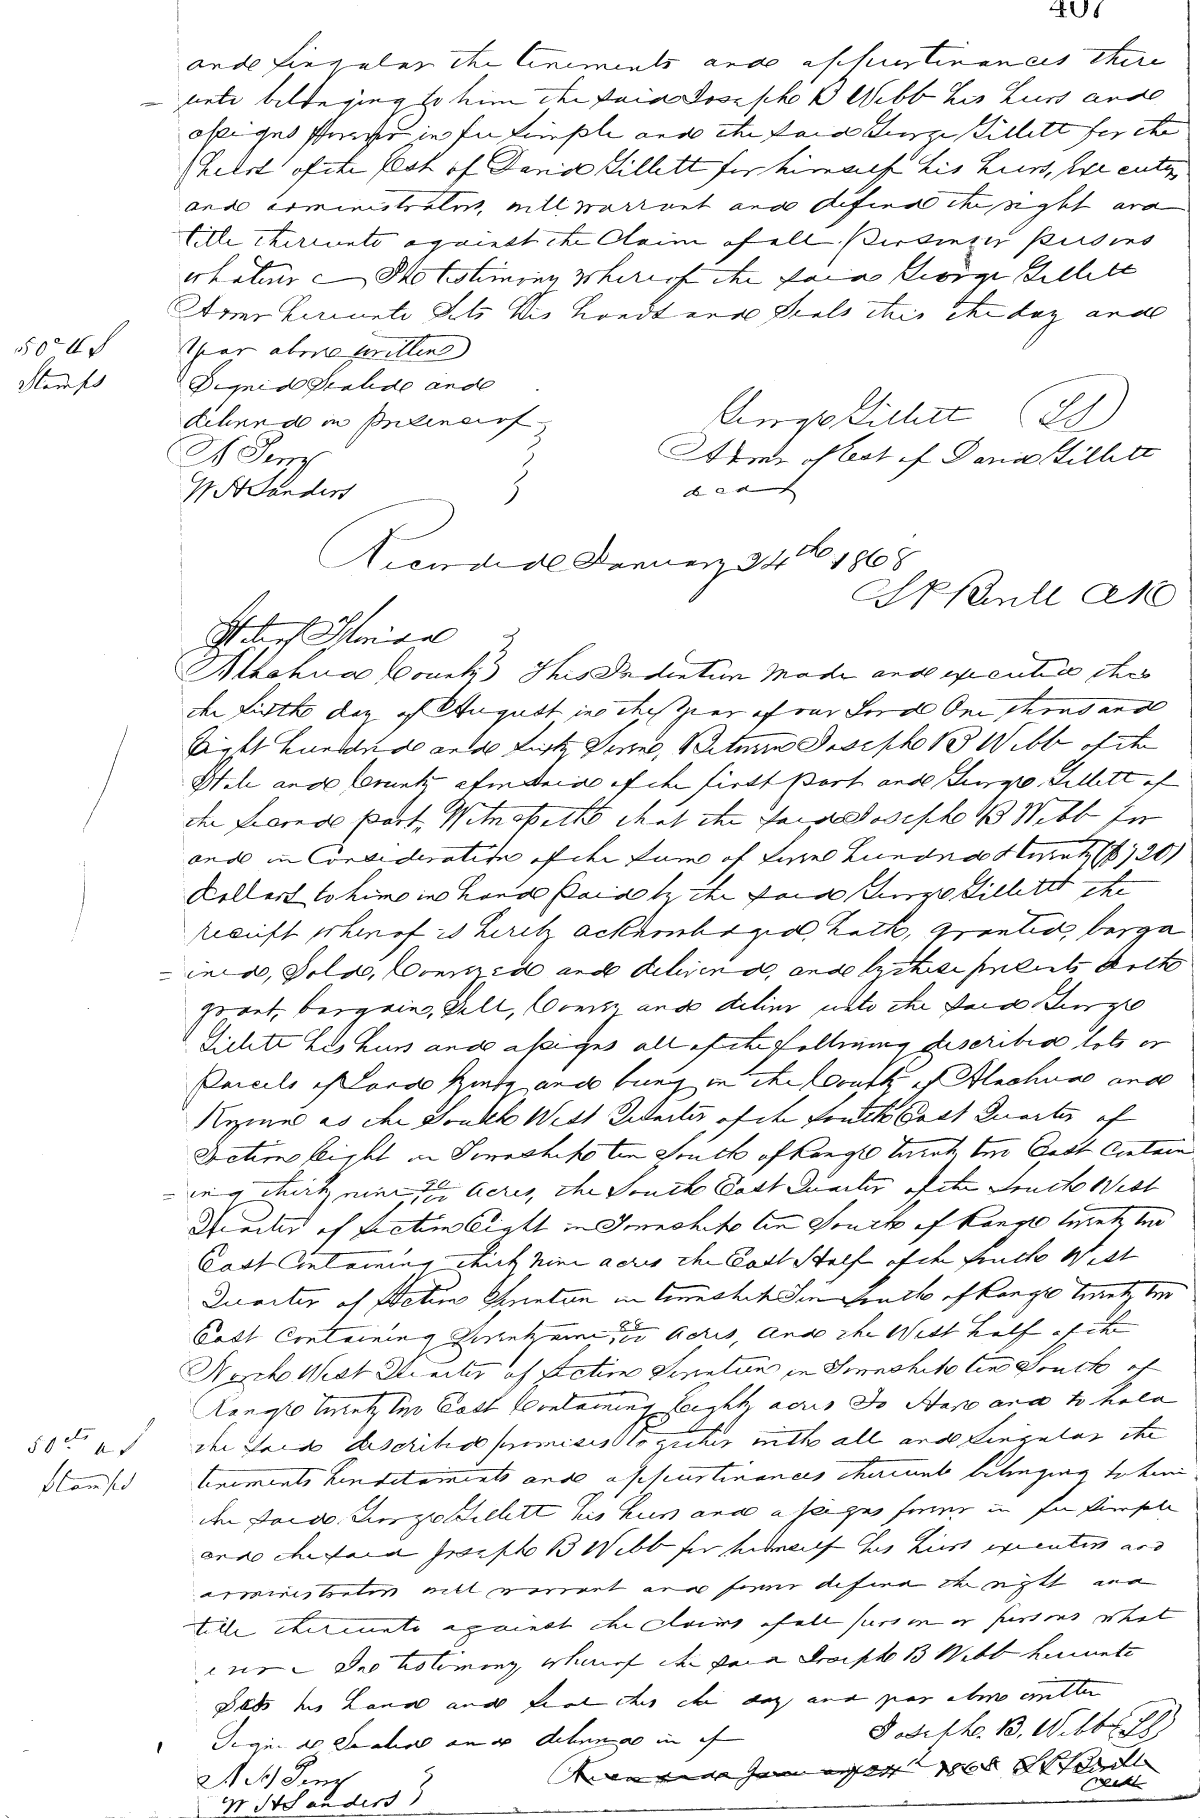 407
and Singular the tenements and appurtinances there
unto belonging to him the said Joseph B Webb his heirs and
assigns forever in fee Simple and the said George Gillett for the
heirs of the Est of David Gillett for himself his heirs, Executors
and administrators, will warrant and defend the right and
title thereunto against the Claim of all Person or persons
whatever In testimony whereof the said George Gillett
Admr hereunto Sets his hand and Seals this the day and
50 cts
Year above written
Stamps
Signed Sealed and
delivered in presence of
George Gillett (LS)
Admr of Est of David Gillett
decd
W H Sanders
Recorded January 24th 1868
State of Florida
Alachua County This Indenture made and executed this
the Sixth day of August in the Year of our Lord One thousand
Eight hundred and Sixty Seven, Between Joseph B Webb of the
State and County aforesaid of the first part and George Gillett of
the Second part, Witnesseth that the said Joseph B Webb for
and in Consideration of the sum of Seven hundred & twenty ($720)
dollars to him in hand paid by the said George Gillett the
receipt whereof is hereby acknowledged, hath, granted, barga
ined, Sold, Conveyed and delivered, and by these presents doth
grant, bargain, Sell, Convey and deliver unto the said George
Gillett his heirs and assigns all of the following described lots or
Parcels of Land lying and being in the County of Alachua and
Known as the South West Quarter of the South East Quarter of
Section Eight in Township ten South of Range twenty two East Contain
ing thirty nine acres, the South East Quarter of the South West
Quarter of Section Eight in Township ten South of Range twenty two
East Containing thirty nine acres the East Half of the South West
Quarter of Section Seventeen in township Ten South of Range twenty two
East Containing Seventy nine acres, and the West half of the
North West Quarter of Section Seventeen in Township ten South of
Range twenty two East Containing Eighty acres To Have and to hold
50 cts
the said described premises together with all and Singular the
Stamps
tenements hereditaments and appurtinances thereunto belonging to him
the said George Gillett his heirs and assigns forever in fee Simple
and the said Joseph B Webb for himself his heirs executors and
administrators will warrant and forever defend the right and
title thereunto against the claims of all person or persons what
ever In testimony whereof the said Joseph B Webb hereunto
Sets his hand and seal this the day and year above written
Signed Sealed and delivered in of
Joseph. B. Webb (LS)
W H Sanders